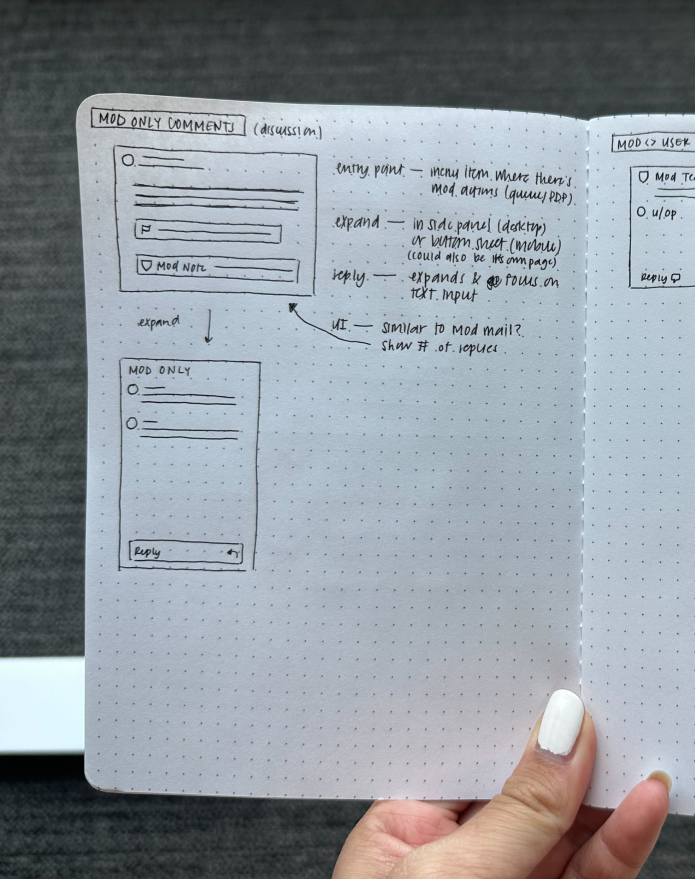 MOD ONLY COMMENTS (discussion)
entry point — menu item where there's
mod actions (queue/PDP)
expand — in side panel (desktop)
or bottom sheet (mobile)
(could also be its own page)
reply — expands & focus on
text input
UI — similar to mod mail?
show # of replies
Mod Note
expand
MOD ONLY
Reply
MOD <> USER
Mod
u/op
Reply